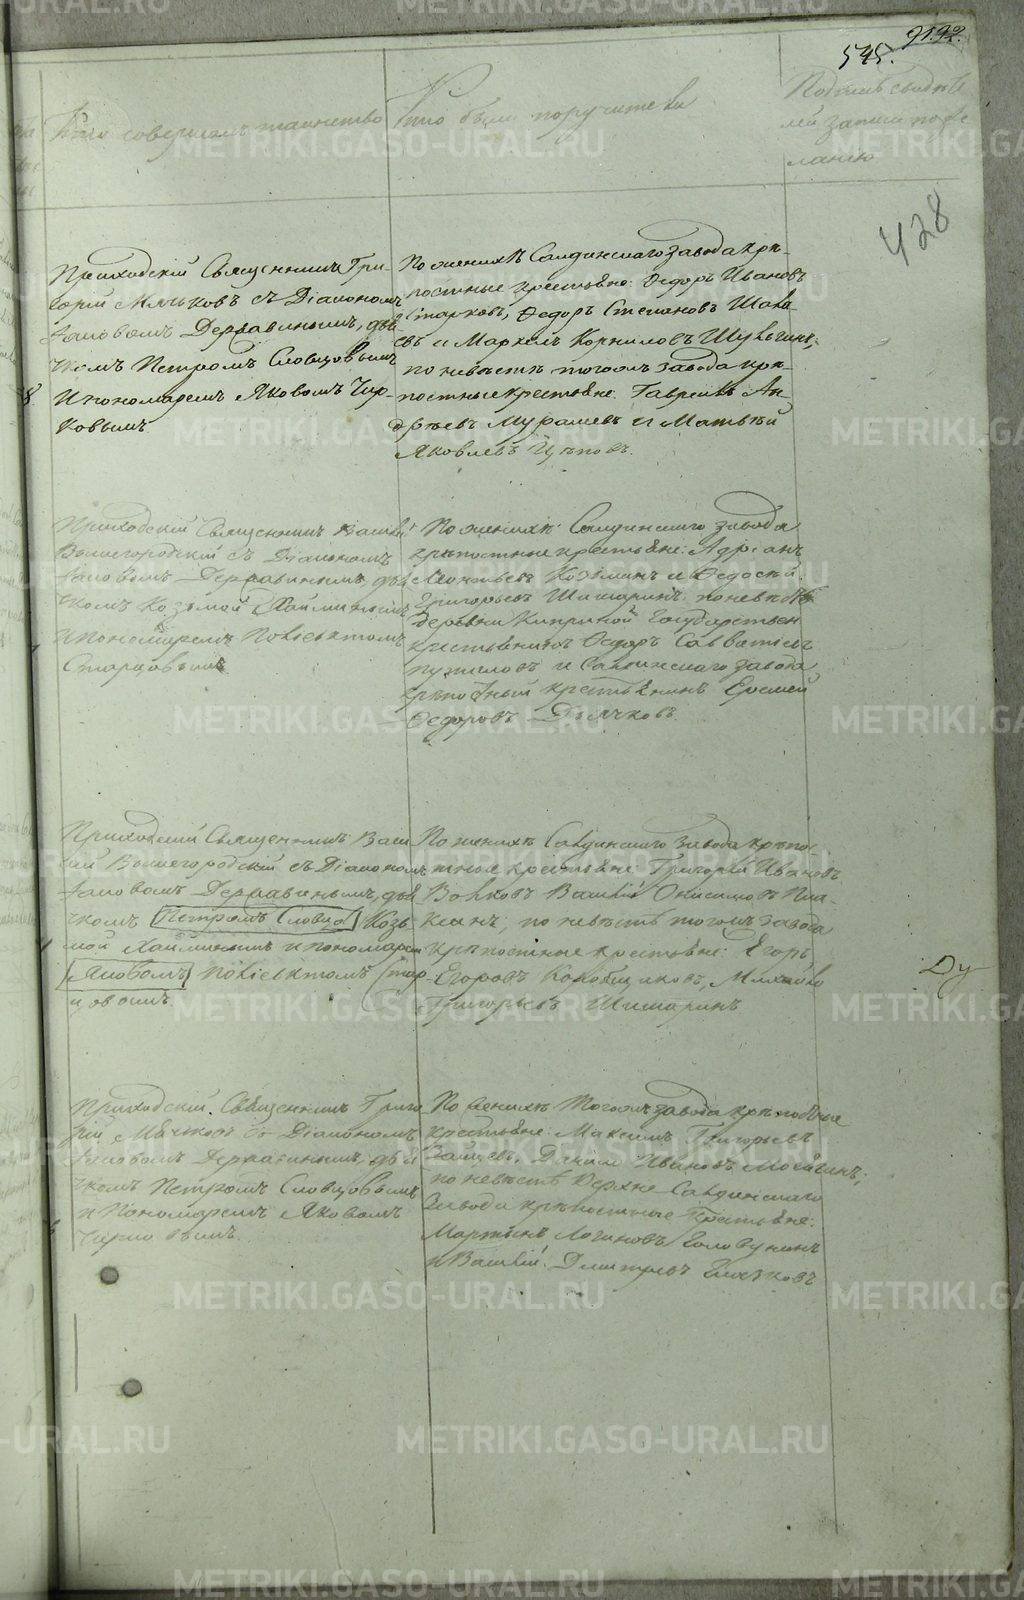 545.
9192.
Кто совершалъ таинство
Кто были поручители
Подпись свидѣте
лей записи по же
ланію
428
Приходскій Священникъ Гри-
горій Мячковъ съ Діакономъ
Іаковомъ Державинымъ, дья
чкомъ Петромъ Словцовымъ
и пономаремъ Яковомъ Чир-
ковымъ
По женихѣ Салдинскаго завода крѣ-
постные крестьяне: Ѳедоръ Ивановъ
Старковъ, Ѳедоръ Степановъ
и Корниловъ
по невѣстѣ тогожъ завода крѣ-
постные крестьяне: Гаврилъ Ан-
дрѣевъ Мурашевъ и Матвѣй
Яковлевъ
Приходскій Священникъ Васи
Вышегородскій съ Діакономъ
Іаковомъ Державинымъ, дья
чкомъ Козьмой Хайминымъ
и Пономаремъ Поліевктомъ
Старцовымъ
По женихѣ Салдинскаго завода
крѣпостные крестьяне: Адріанъ
Леонтьевъ Козьминъ и Ѳедосѣй
Григорьевъ Шишаринъ по невѣстѣ
деревни Киприной Государствен
крестьянинъ Ѳедоръ Савватіевъ
и Салдинскаго завода
крѣпостный крестьянинъ Еремей
Ѳедоровъ Дьячковъ
Приходскій Священникъ Васи
лій Вышегородскій съ Діакономъ
Іаковомъ Державинымъ, дья
чкомъ Петромъ Словцо Козь
мой Хайминымъ и пономарем
Яковомъ Поліевктомъ Стар
цовымъ
По женихѣ Салдинскаго завода крѣпо
стные крестьяне Григорій Ивановъ
Волковъ Василій
по невѣстѣ тогожъ завода
крѣпостные крестьяне: Егоръ
Егоровъ Михайло
Григорьевъ Шишаринъ
Приходскій Священникъ Григо
рій Мячковъ съ Діакономъ
Іаковомъ Державинымъ, дья
чкомъ Петромъ Словцовымъ
и Пономаремъ Яковомъ
Чирковымъ
По женихѣ тогожъ завода крѣпостные
крестьяне: Максимъ Григорьевъ
Зайцевъ, Данило Ивановъ
по невѣстѣ Верхне Салдинскаго
завода крѣпостные крестьяне:
Мартынъ Логиновъ Головунинъ
и Василій Дмитріевъ
METRIKI.GASO-URAL.RU